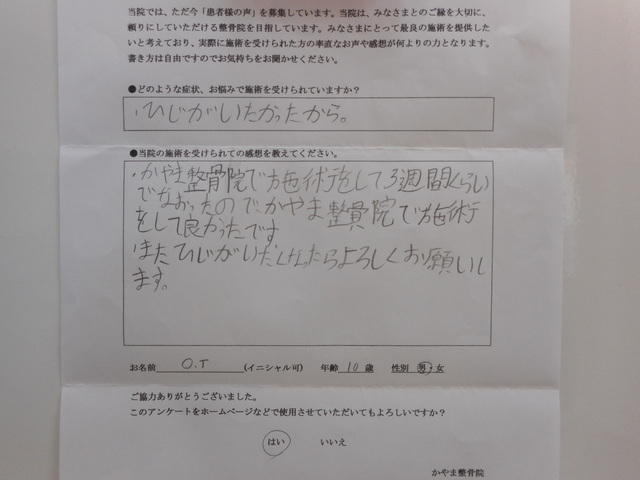 当院では、ただ今「患者様の声」を募集しています。当院は、みなさまとのご縁を大切に、
頼りにしていただける整骨院を目指しています。みなさまにとって最良の施術を提供した
いと考えており、実際に施術を受けられた方の率直なお声や感想が何よりの力となります。
書き方は自由ですのでお気持ちをお聞かせください。
●どのような症状、お悩みで施術を受けられていますか？
・ひじがいたかったから。
●当院の施術を受けられての感想を教えてください。
・かやま整骨院で施術をして3週間くらい
でなおったので、かやま整骨院で施術
をして良かったです
・またひじがいたくなったらよろしくお願いし
ます。
お名前 O.T (イニシャル可) 年齢 10 歳 性別 男・女
ご協力ありがとうございました。
このアンケートをホームページなどで使用させていただいてもよろしいですか？
はい いいえ
かやま整骨院